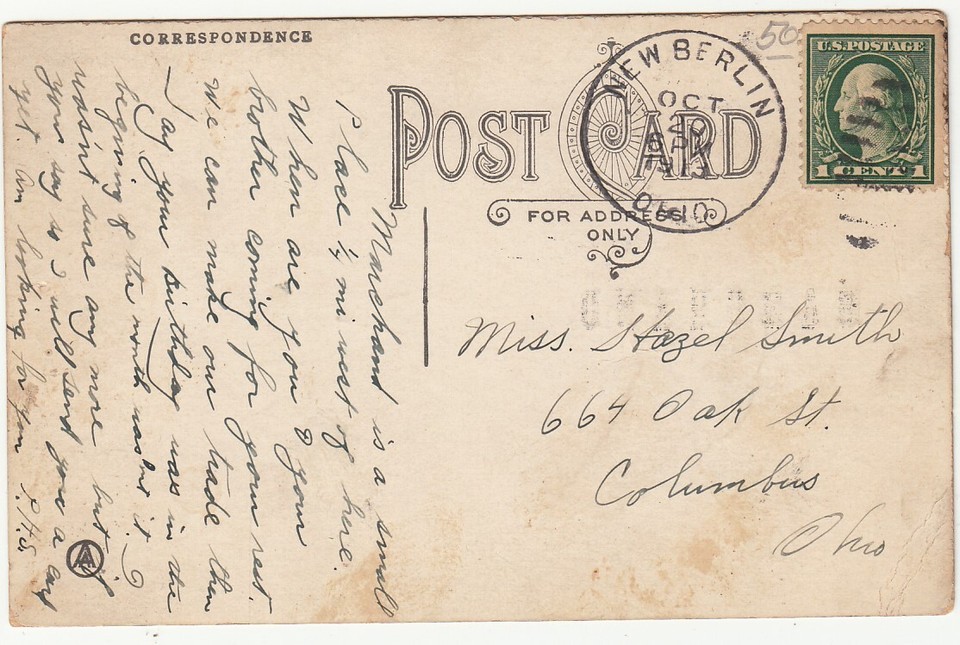 CORRESPONDENCE
POST CARD
FOR ADDRESS
ONLY
NEW BERLIN
OCT
20
PM
1913
OHIO
50
U.S. POSTAGE
1 CENT 1
Marchand is a small
place 1/4 mi west of here.
When are you & your
brother coming for your rest.
We can make our trade then
Say your birthday was in the
begining of the month wasnt it.
wasn't sure any more but if
you say so I will send you a card
yet. Am looking for you P.H.S.
Miss. Hazel Smith
664 Oak St.
Columbus
Ohio